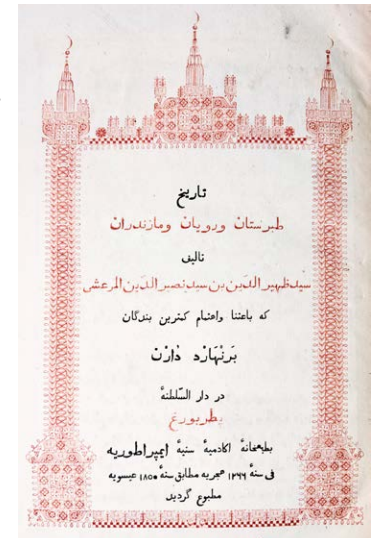 تاريخ
طبرستان ورويان ومازندران
تاليف
سيد ظهير الدين بن سيد نصير الدين المرعشى
كه باعتنا واهتمام كمترين بندگان
برنهارد دارن
در دار السّلطنهٔ
پطربورغ
بطبعخانهٔ اكادميهٔ سنيهٔ ايمپراطوريه
فى سنهٔ ۱۲۶۶ هجريه مطابق سنهٔ ۱۸۵۰ عيسويه
مطبوع گرديد